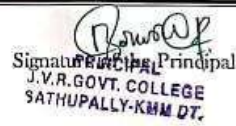 Signature of the Principal
PRINCIPAL
J.V.R.GOVT. COLLEGE
SATHUPALLY-KMM DT.